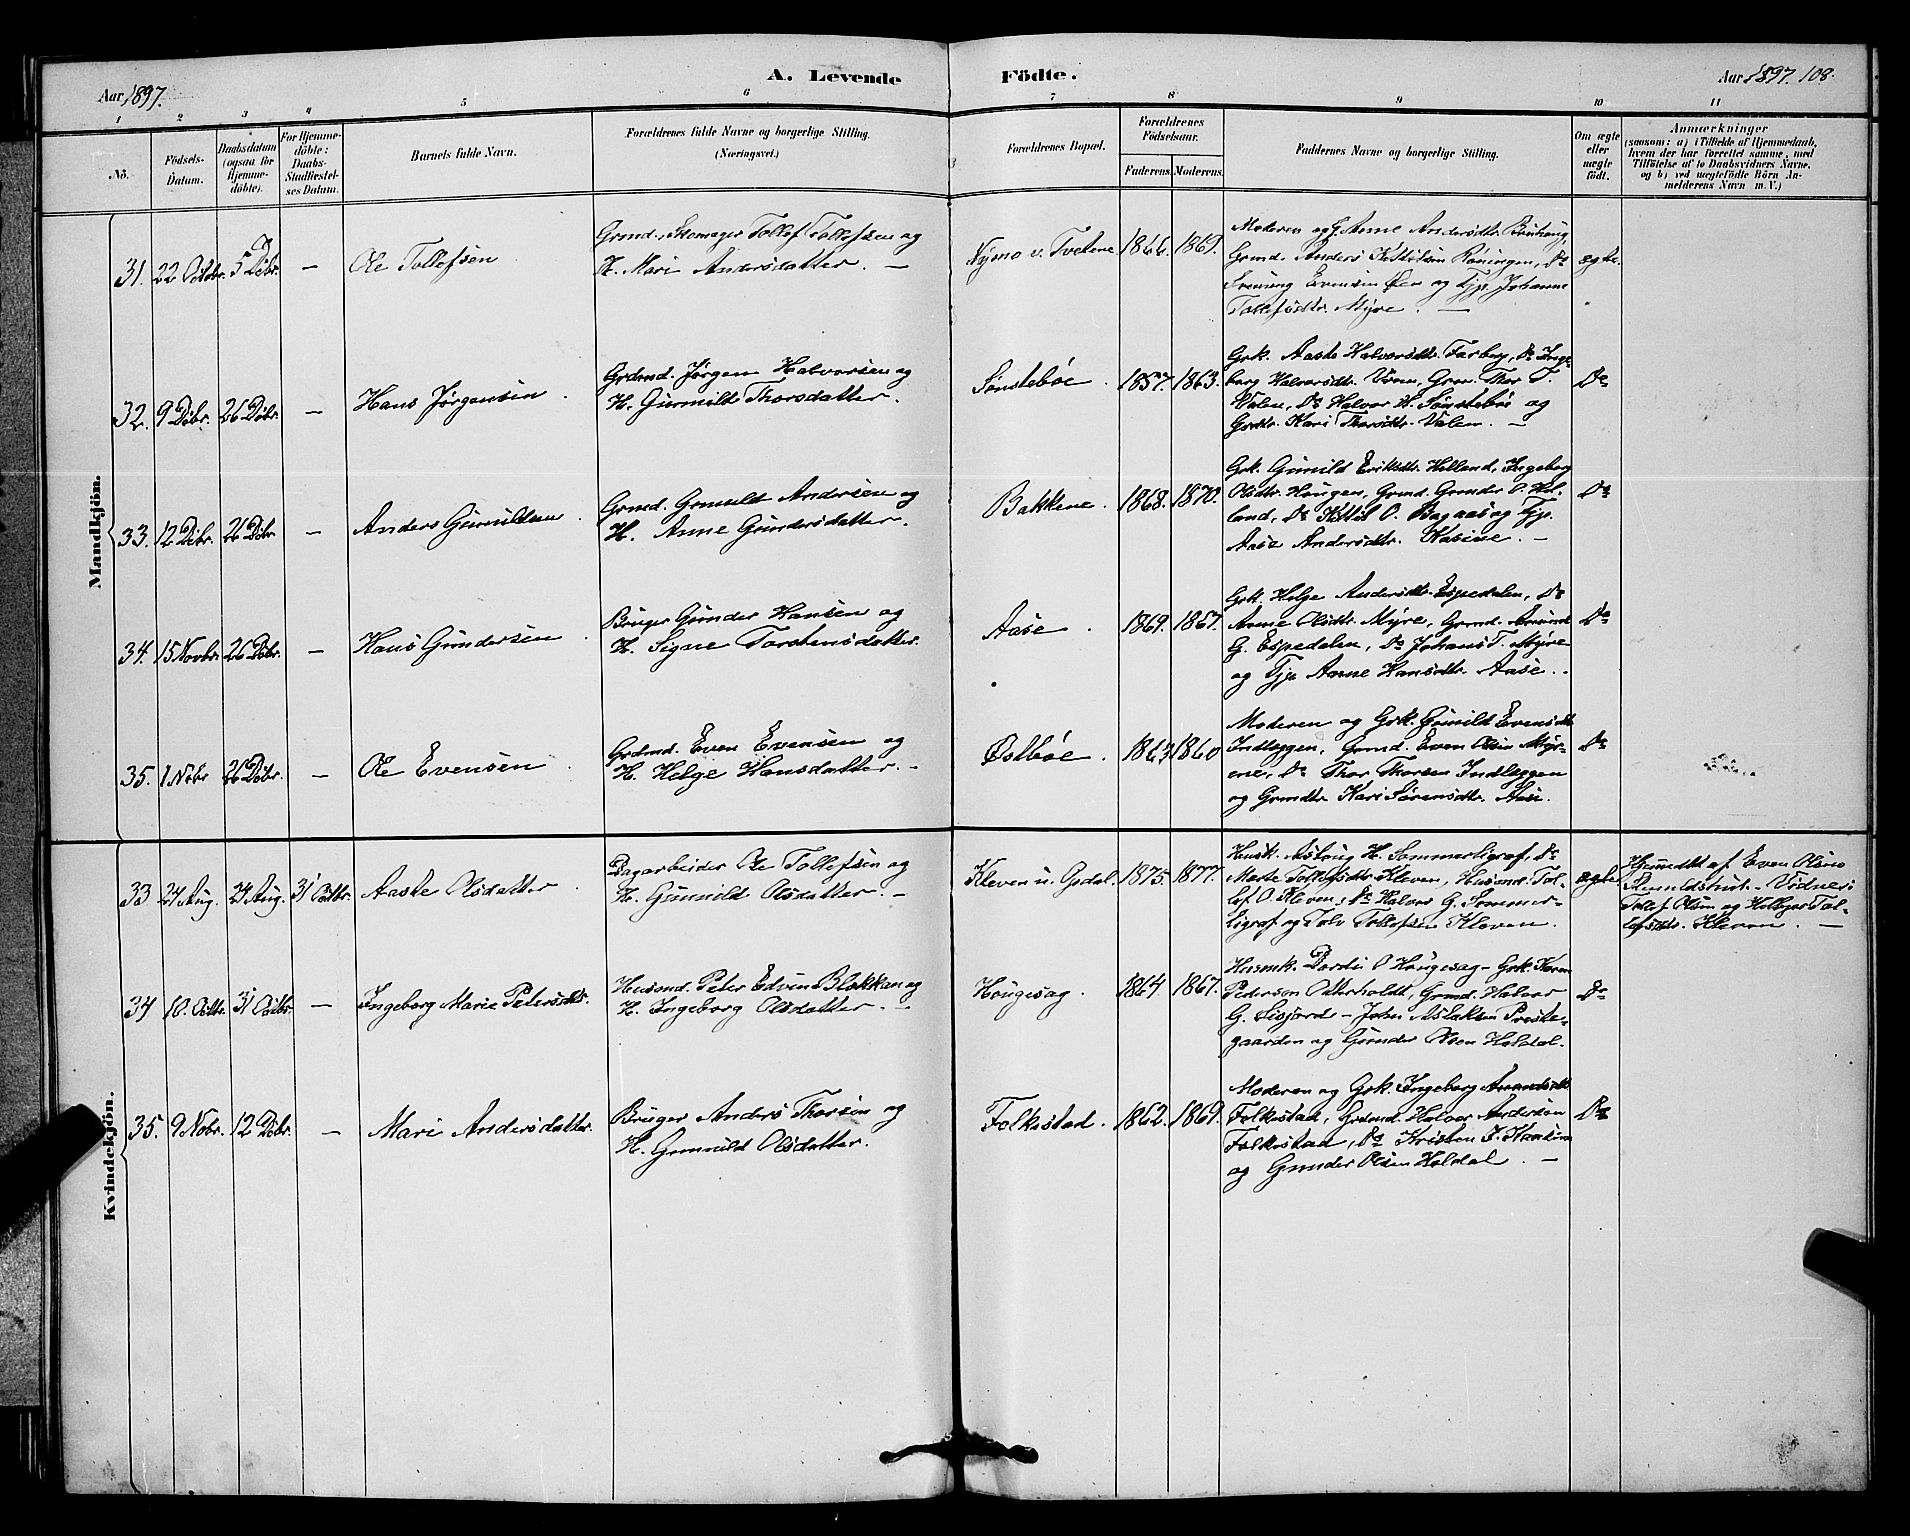 Aar 1897.
A. Levende Födte.
Aar 1897. 108.
1 2 3 4 5 6 7 8 9 10 11
No.
Födsels-Datum.
Daabsdatum (ogsaa for Hjemme-döbte).
For Hjemme-döbte: Daabs-Stadfæstel-ses Datum.
Barnets fulde Navn.
Forældrenes fulde Navne og borgerlige Stilling.
(Næringsvei.)
Forældrenes Bopæl.
Forældrenes Födselsaar.
Faderens. Moderens.
Faddernes Navne og borgerlige Stilling.
Om ægte eller uægte födt.
Anmærkninger
(saasom: a) i Tilfælde af Hjemmedaab,
hvem der har forrettet samme, med
Tilföielse af to Daabsvidners Navne,
og b) ved uægtefödte Börn An-
melderens Navn m. V.)
Mandkjön.
31. 22 Oktbr. 5 Dcbr. — Ole Tollefsen
Grmd. Skomager Tollef Tollefsen og
H. Mari Andersdatter. —
Nymo v. Tvetene 1866. 1869.
Moderen og G. Anne Andersdtr.
Grmd. Anders Kittilsen Röningen, Do
Evensen Øen og Tjp. Johanne
Tollefsdtr. Myre. —
ægte.
32. 9 Dcbr. 26 Dcbr. — Hans Jørgensen.
Grdmd. Jørgen Halvorsen og
H. Gunnild Thorsdatter.
Sönstebøe. 1857. 1863.
Grk. Aaste Halvorsdtr. Farberg, Do Inge-
borg Halvorsdtr. Grm. Thor T.
Valen, Do Halvor H. Sønstebøe og
Grdtr. Kari Thorsdtr. Valen. —
Do
33. 12 Dcbr. 26 Dcbr. — Anders Gunnuldsen.
Grmd. Gunnuld Andersen og
H. Anne Gundersdatter.
Bakkene. 1868. 1870.
Grk. Gunild Eriksdtr. Helland, Ingeborg
Olsdtr. Haugen, Grmd. Gunder O. Hel-
land, Do Kittil O. Bagaas og Tjp.
Aase Andersdtr. Kasine. —
Do
34. 15 Novbr. 26 Dcbr. — Hans Gundersen.
Bruger Gunder Hansen og
H. Signe Torstensdatter.
Aase. 1869. 1867.
Grk. Helge Andersdtr. Espedalen, Do
Anne Olsdtr. Myre, Grmd. Amund
G. Espedalen, Do Johans T. Myre
og Tjp. Anne Hansdtr. Aase.
Do
35. 1 Nobr 26 Dcbr. — Ole Evensen.
Grdmd. Even Evensen og
H. Helge Hansdatter. —
Østbøe. 1863 1860
Moderen og Grk. Gunild Evensdtr.
Indlæggen, Grmd. Even Olsen Myr-
ene, Do Thor Thorsen Indlæggen
og Grmdtr. Kari Sørensdtr. Aase.
Do
Kvindekjön.
33 24 Aug. 24 Aug. 31 Oktbr. Aaste Olsdatter.
Dagarbeider Ole Tollefsen og
H. Gunnild Olsdatter. —
Kleven u. Gvdal. 1875. 1877.
Husk. Aslaug H. Sommerligraf, Do
Marte Tollefsdtr. Kleven, Husmd. Tol-
lef O. Kleven, Do Halvor G. Sommer-
ligraf og Tolv Tollefsen Kleven.
ægte.
Hjemdbt af Even Olsen
Vidner:
Tollef Olsen og Tol-
lefsdtr. Kleven. —
34 10. Oktbr. 31 Oktbr — Ingeborg Marie Petersdtr.
Husmd. Peter Edvin Blekkan og
H. Ingeborg Olsdatter. —
Haugesag. 1864. 1867.
Husmk. Dordi O Haugesag - Grk. Karen
Pedersen Otterholdt, Grmd. Halvor
G. Sisjord - John Aslaksen Preste-
gaarden og Gunder Olsen Holdal.
Do
35. 9 Nobr. 12 Dcbr. — Mari Andersdatter.
Bruger Anders Thorsen og
H. Gunnild Olsdatter.
Folkestad. 1862. 1869.
Moderen og Grk. Ingeborg Amundsdtr.
Folkestad, Grdmd. Halvor Andersen
Folkestad, Do Kristen J. Hansen
og Gunder Olsen Holdal. —
Do